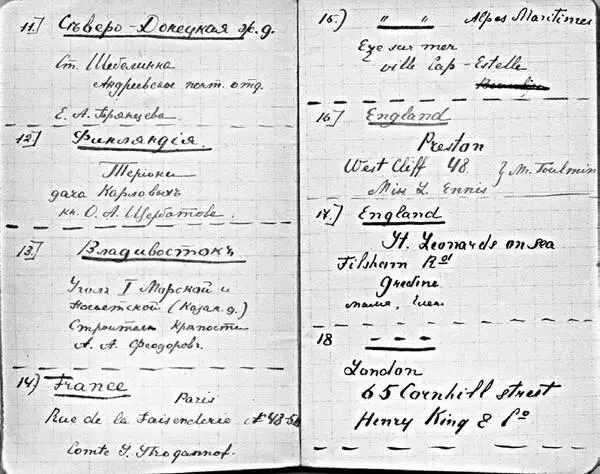 11.) Сѣверо-Донецкая ж. д.
Ст. Шебелинка
Андреевское почт. отд.
Е. А. Брянцева.
12) Финляндія.
Теріоки
дача Карловыхъ
кн. О. А. Щербатове.
13.) Владивостокъ
Уголъ I Морской и
Посьетской (Казан. д.)
Строителю Крѣпости
А. А. Ѳеодоровъ.
14.) France
Paris
Rue de la Faisenderie № 48-56
Comte S. Strogannof.
15.) " " Alpes Maritimes
Eze sur mer
ville Cap-Estelle
16.) England
Preston
West Cliff 48. } Mr. Toulmin
Miss L. Ennis
17.) England
St. Leonards on sea
Filsham Rd
мама,
18 ----
London
65 Cornhill street
Henry King & Co